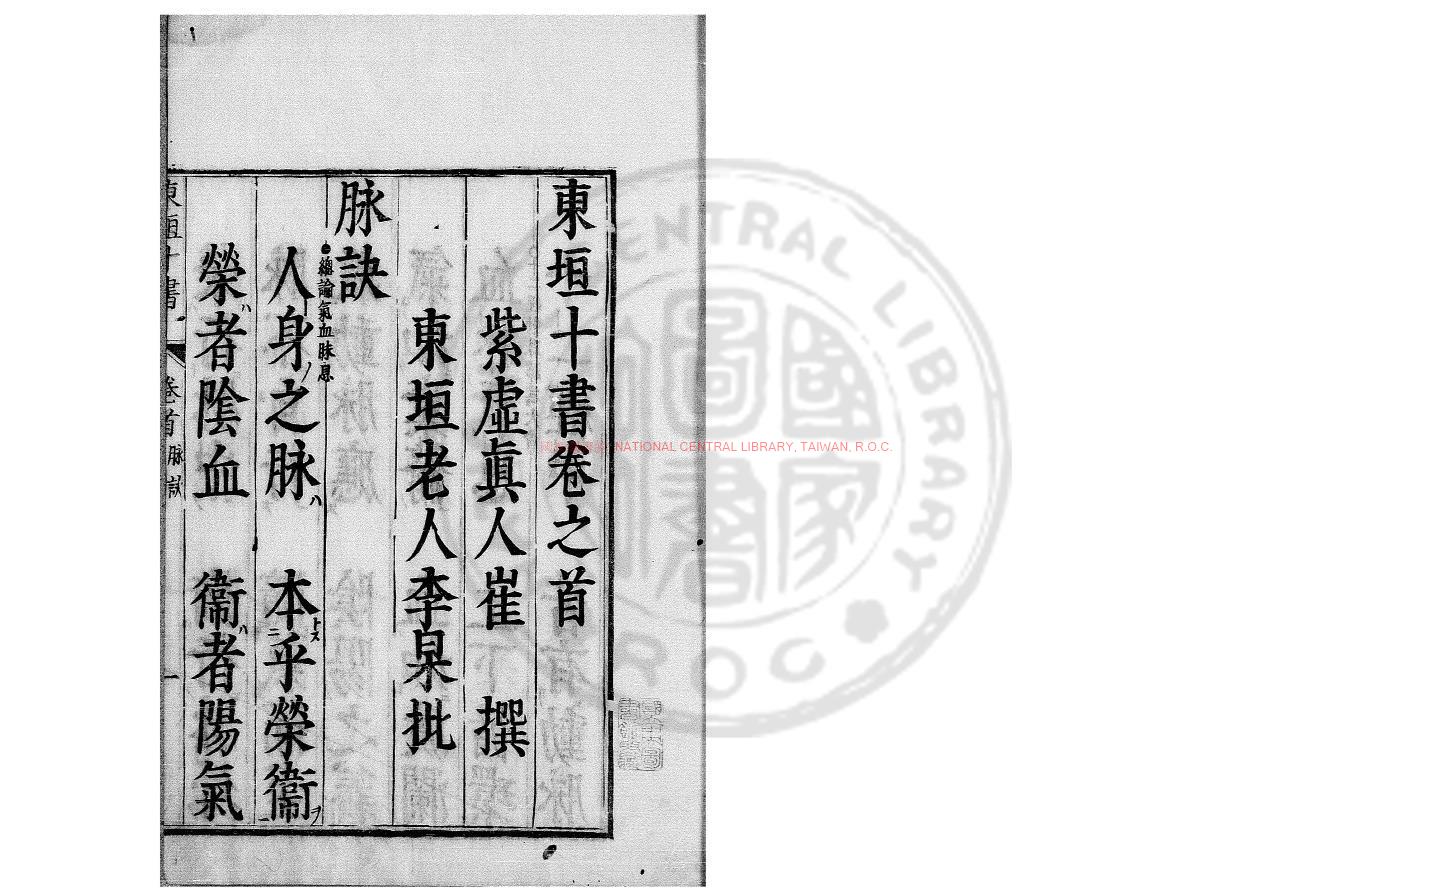 東垣十書卷之首
紫虛真人崔　撰
東垣老人李杲批
脉訣
總論氣血脉息
人身之脉　本乎榮衞
榮者陰血　衞者陽氣
東垣十書　卷首　脉訣　一
NATIONAL CENTRAL LIBRARY, TAIWAN, R.O.C.
CENTRAL LIBRARY
R.O.C
國家圖書